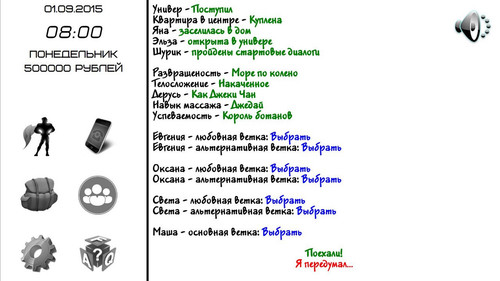 01.09.2015
08:00
ПОНЕДЕЛЬНИК
500000 РУБЛЕЙ
Универ - Поступил
Квартира в центре - Куплена
Яна - заселилась в дом
Эльза - открыта в универе
Шурик - пройдены стартовые диалоги
Развращеность - Море по колено
Телосложение - Накаченное
Дерусь - Как Джеки Чан
Навык массажа - Джедай
Успеваемость - Король ботанов
Евгения - любовная ветка: Выбрать
Евгения - альтернативная ветка: Выбрать
Оксана - любовная ветка: Выбрать
Оксана - альтернативная ветка: Выбрать
Света - любовная ветка: Выбрать
Света - альтернативная ветка: Выбрать
Маша - основная ветка: Выбрать
Поехали!
Я передумал...
A ? Q